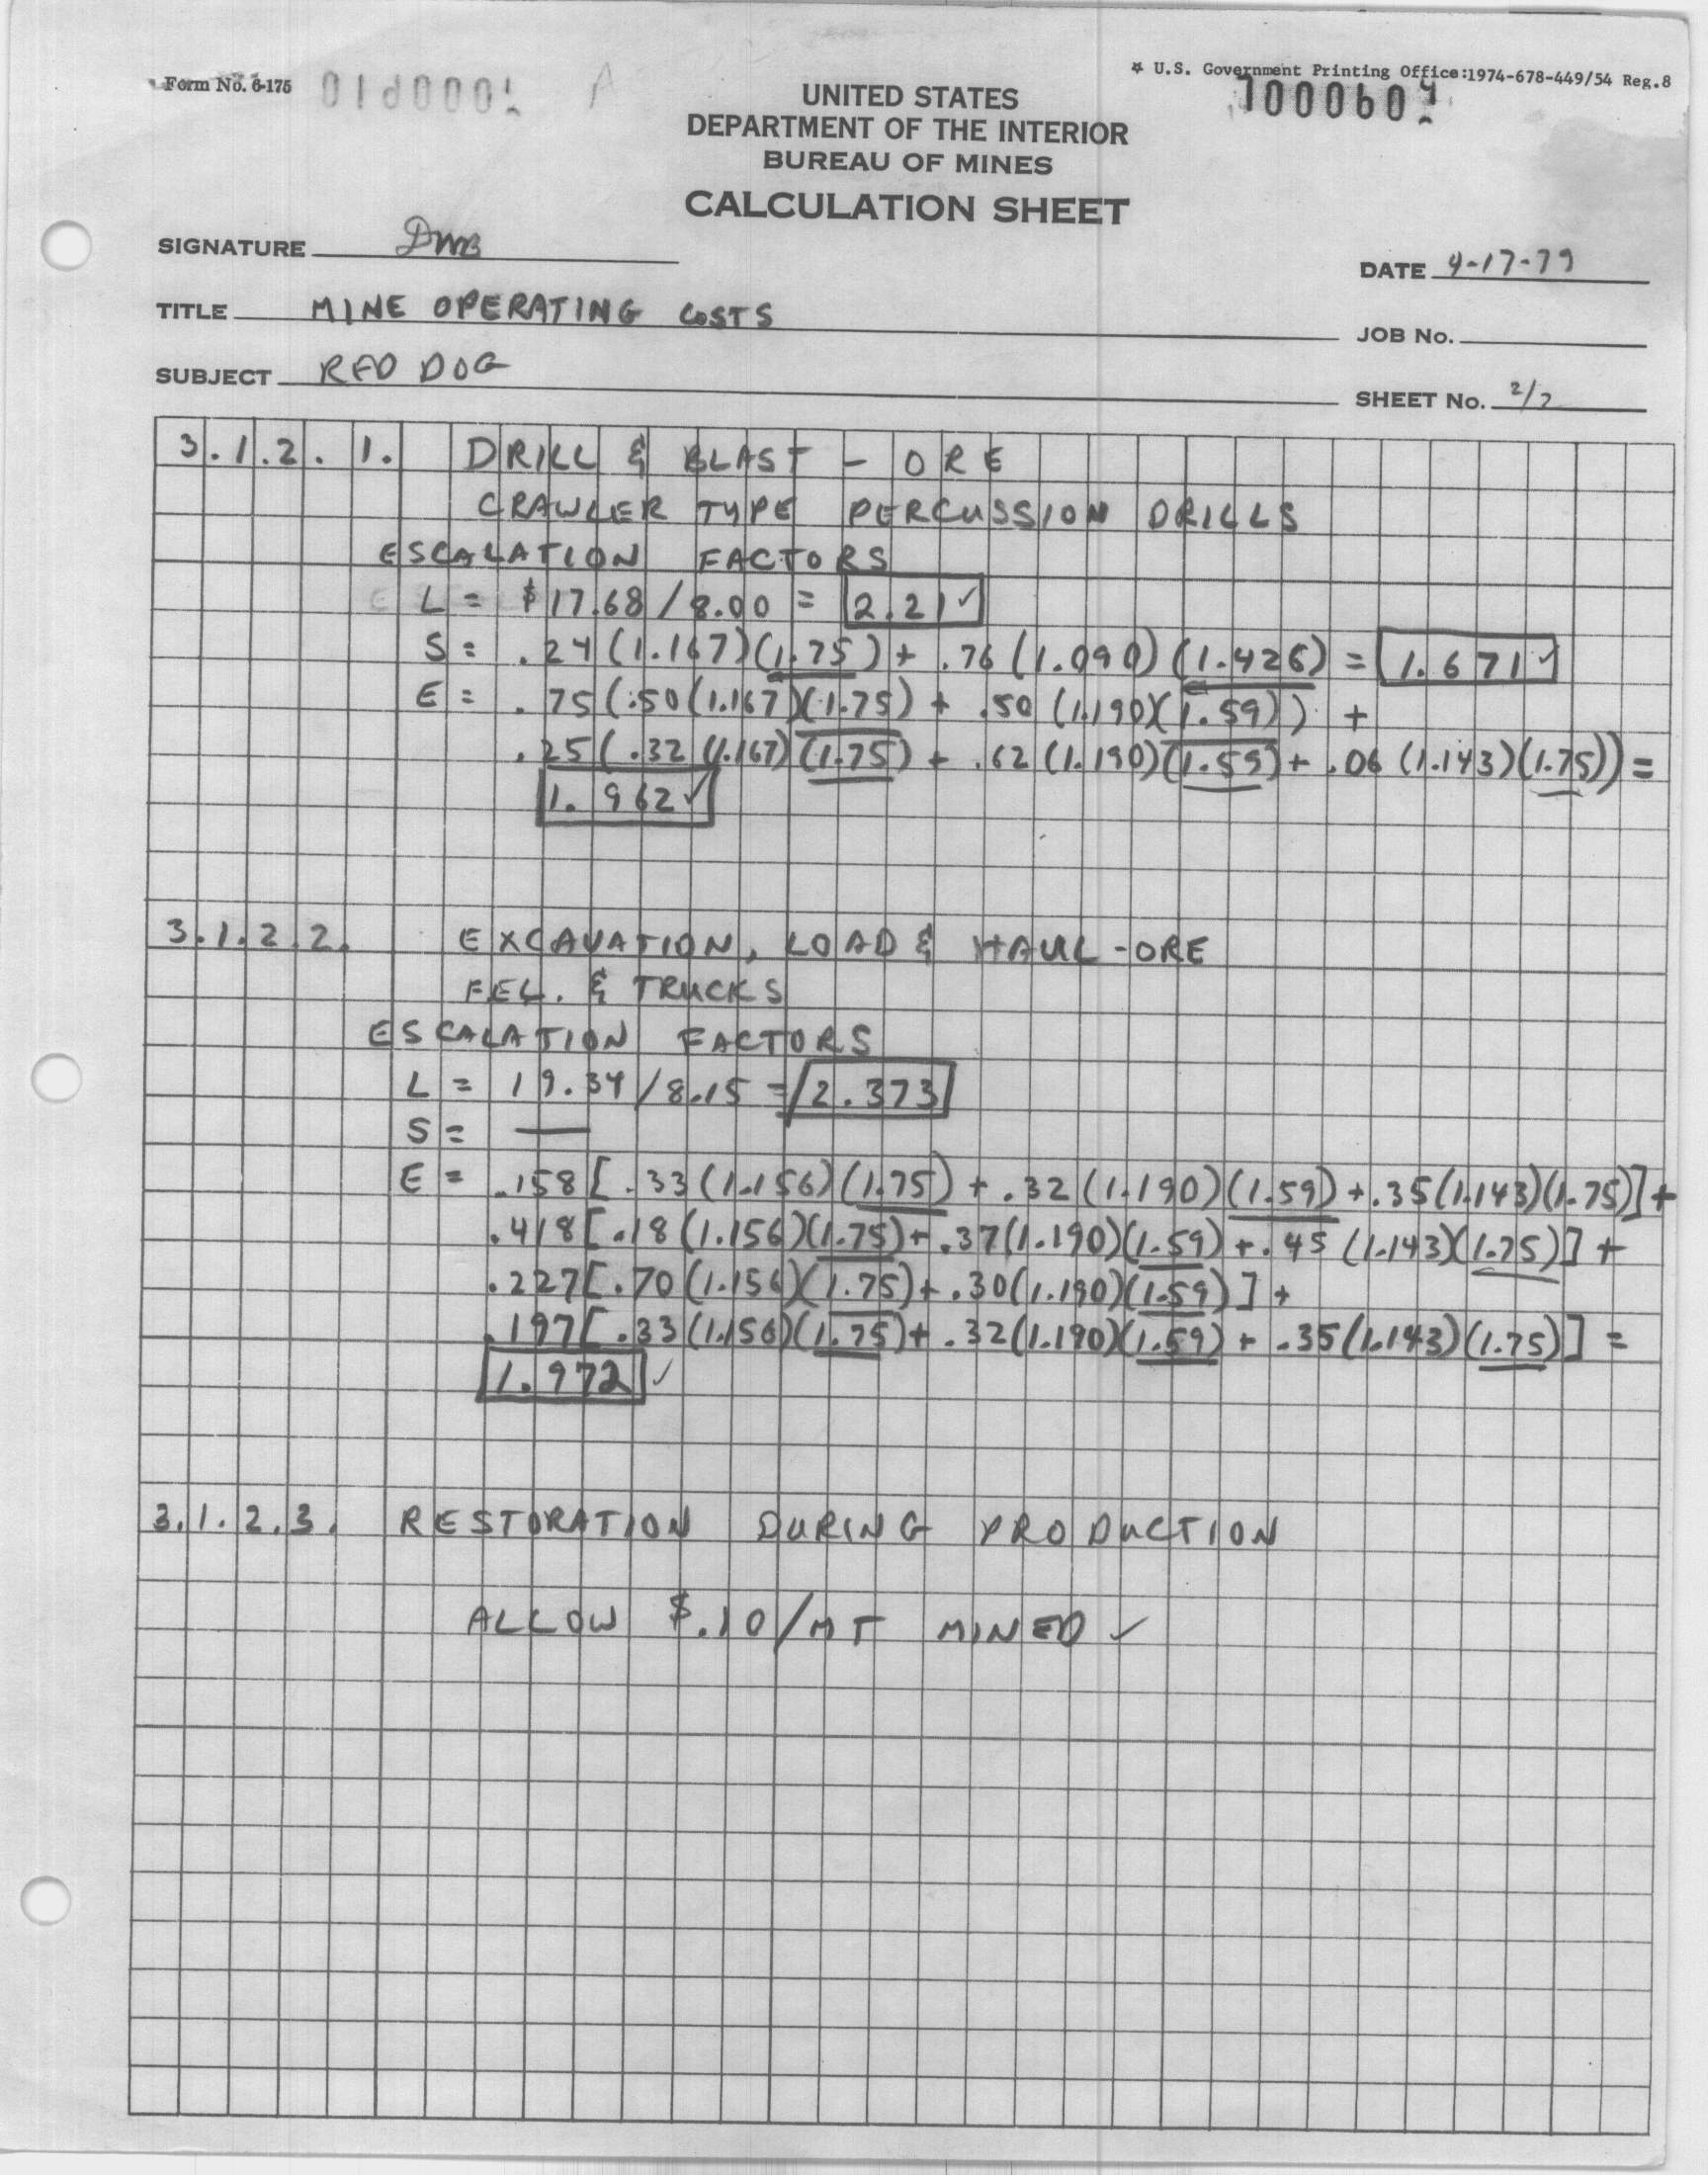 Form No. 6-175
* U.S. Government Printing Office:1974-678-449/54 Reg.8
UNITED STATES
DEPARTMENT OF THE INTERIOR
BUREAU OF MINES
CALCULATION SHEET
SIGNATURE DMB
DATE 4-17-79
TITLE MINE OPERATING COSTS
JOB No.
SUBJECT RED DOG
SHEET No. 2/2
3.1.2.1. DRILL & BLAST - ORE
CRAWLER TYPE PERCUSSION DRILLS
ESCALATION FACTORS
L = $17.68/8.00 = 2.21 ✓
S = .24(1.167)(1.75) + .76(1.090)(1.426) = 1.671 ✓
E = .75(.50(1.167)(1.75) + .50(1.190)(1.59)) +
.25(.32(1.167)(1.75) + .62(1.190)(1.59) + .06(1.143)(1.75)) =
1.962 ✓
3.1.2.2. EXCAVATION, LOAD & HAUL - ORE
F.E.L. & TRUCKS
ESCALATION FACTORS
L = 19.34/8.15 = 2.373
S = —
E = .158[.33(1.156)(1.75) + .32(1.190)(1.59) + .35(1.143)(1.75)] +
.418[.18(1.156)(1.75) + .37(1.190)(1.59) + .45(1.143)(1.75)] +
.227[.70(1.156)(1.75) + .30(1.190)(1.59)] +
.197[.33(1.156)(1.75) + .32(1.190)(1.59) + .35(1.143)(1.75)] =
1.972 ✓
3.1.2.3. RESTORATION DURING PRODUCTION
ALLOW $.10/MT MINED ✓